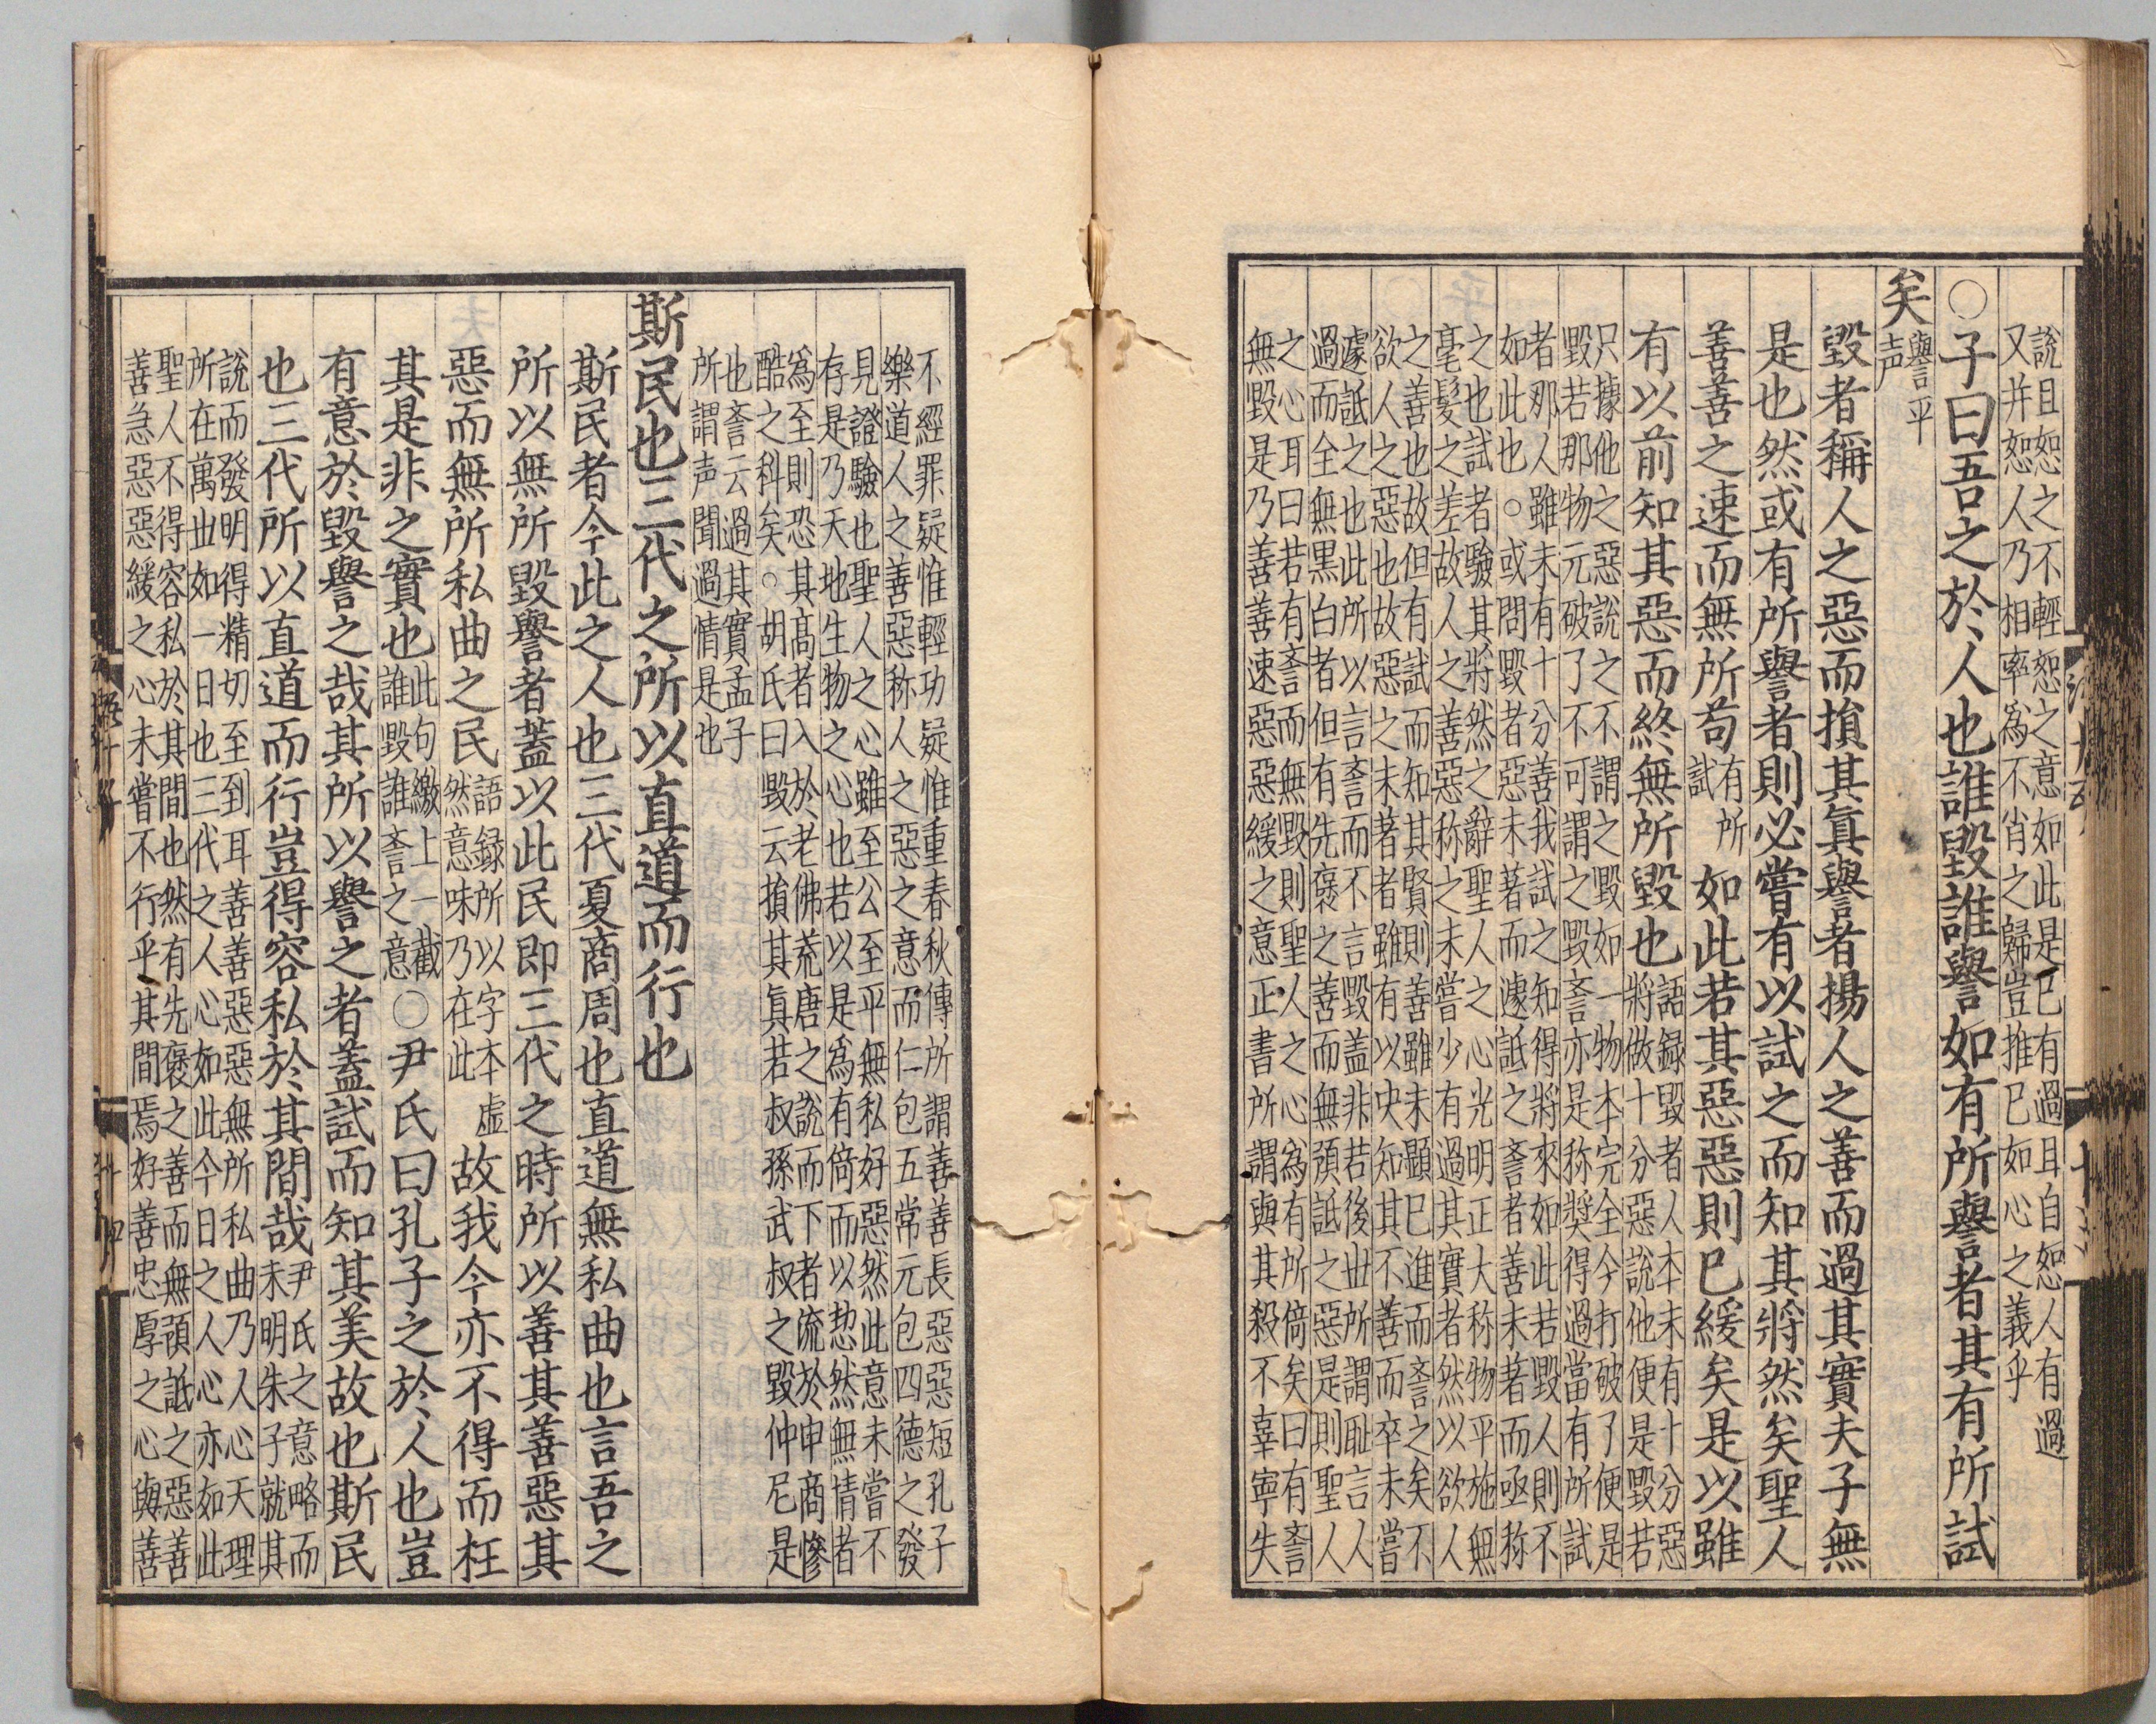 說且恕之不輕恕之意如此是已有過耳自恕人有過
又并恕人乃相率爲不肖之歸豈推已如心之義乎
○子曰吾之於人也誰毀誰譽如有所譽者其有所試
矣
譽平
声
毀者稱人之惡而損其眞譽者揚人之善而過其實夫子無
是也然或有所譽者則必嘗有以試之而知其將然矣聖人
善善之速而無所苟有所
試如此若其惡惡則已緩矣是以雖
有以前知其惡而終無所毀也語録毀者人本未有十分惡
將做十分惡說他便是毀若
只據他之惡說之不謂之毀如一物本完全今打破了便是
毀若那物元破了不可謂之毀誉亦是称奬得過當有所試
者那人雖未有十分善我試之知得將來如此若毀人則不
如此也○或問毀者惡未著而遽詆之誉者善未著而亟称
之也試者驗其將然之辭聖人之心光明正大称物平施無
毫髮之差故人之善惡称之未嘗少有過其實者然以欲人
之善也故但有試而知其賢則善雖未顯已進而誉之矣不
欲人之惡也故惡之未著者雖有以决知其不善而卒未嘗
遽詆之也此所以言誉而不言毀盖非若後世所謂耻言人
過而全無黑白者但有先褒之善而無預詆之惡是則聖人
之心耳曰若有誉而無毀則聖人之心為有所倚矣曰有誉
無毀是乃善善速惡惡緩之意正書所謂與其殺不辜寧失
不經罪疑惟輕功疑惟重春秋傳所謂善善長惡惡短孔子
樂道人之善惡称人之惡之意而仁包五常元包四德之發
見證驗也聖人之心雖至公至平無私好惡然此意未嘗不
存是乃天地生物之心也若以是爲有倚而以恝然無情者
爲至則恐其高者入於老佛荒唐之說而下者流於申商慘
酷之科矣○胡氏曰毀云損其眞若叔孫武叔之毀仲尼是
也誉云過其實孟子
所謂声聞過情是也
斯民也三代之所以直道而行也
斯民者今此之人也三代夏商周也直道無私曲也言吾之
所以無所毀譽者蓋以此民即三代之時所以善其善惡其
惡而無所私曲之民語録所以字本虛
然意味乃在此故我今亦不得而枉
其是非之實也此句繳上一截
誰毀誰誉之意○尹氏曰孔子之於人也豈
有意於毀譽之哉其所以譽之者蓋試而知其美故也斯民
也三代所以直道而行豈得容私於其間哉尹氏之意略而
未明朱子就其
說而發明得精切至到耳善善惡惡無所私曲乃人心天理
所在萬世如一日也三代之人心如此今日之人心亦如此
聖人不得容私於其間也然有先褒之善而無預詆之惡善
善急惡惡緩之心未嘗不行乎其間焉好善忠厚之心與善